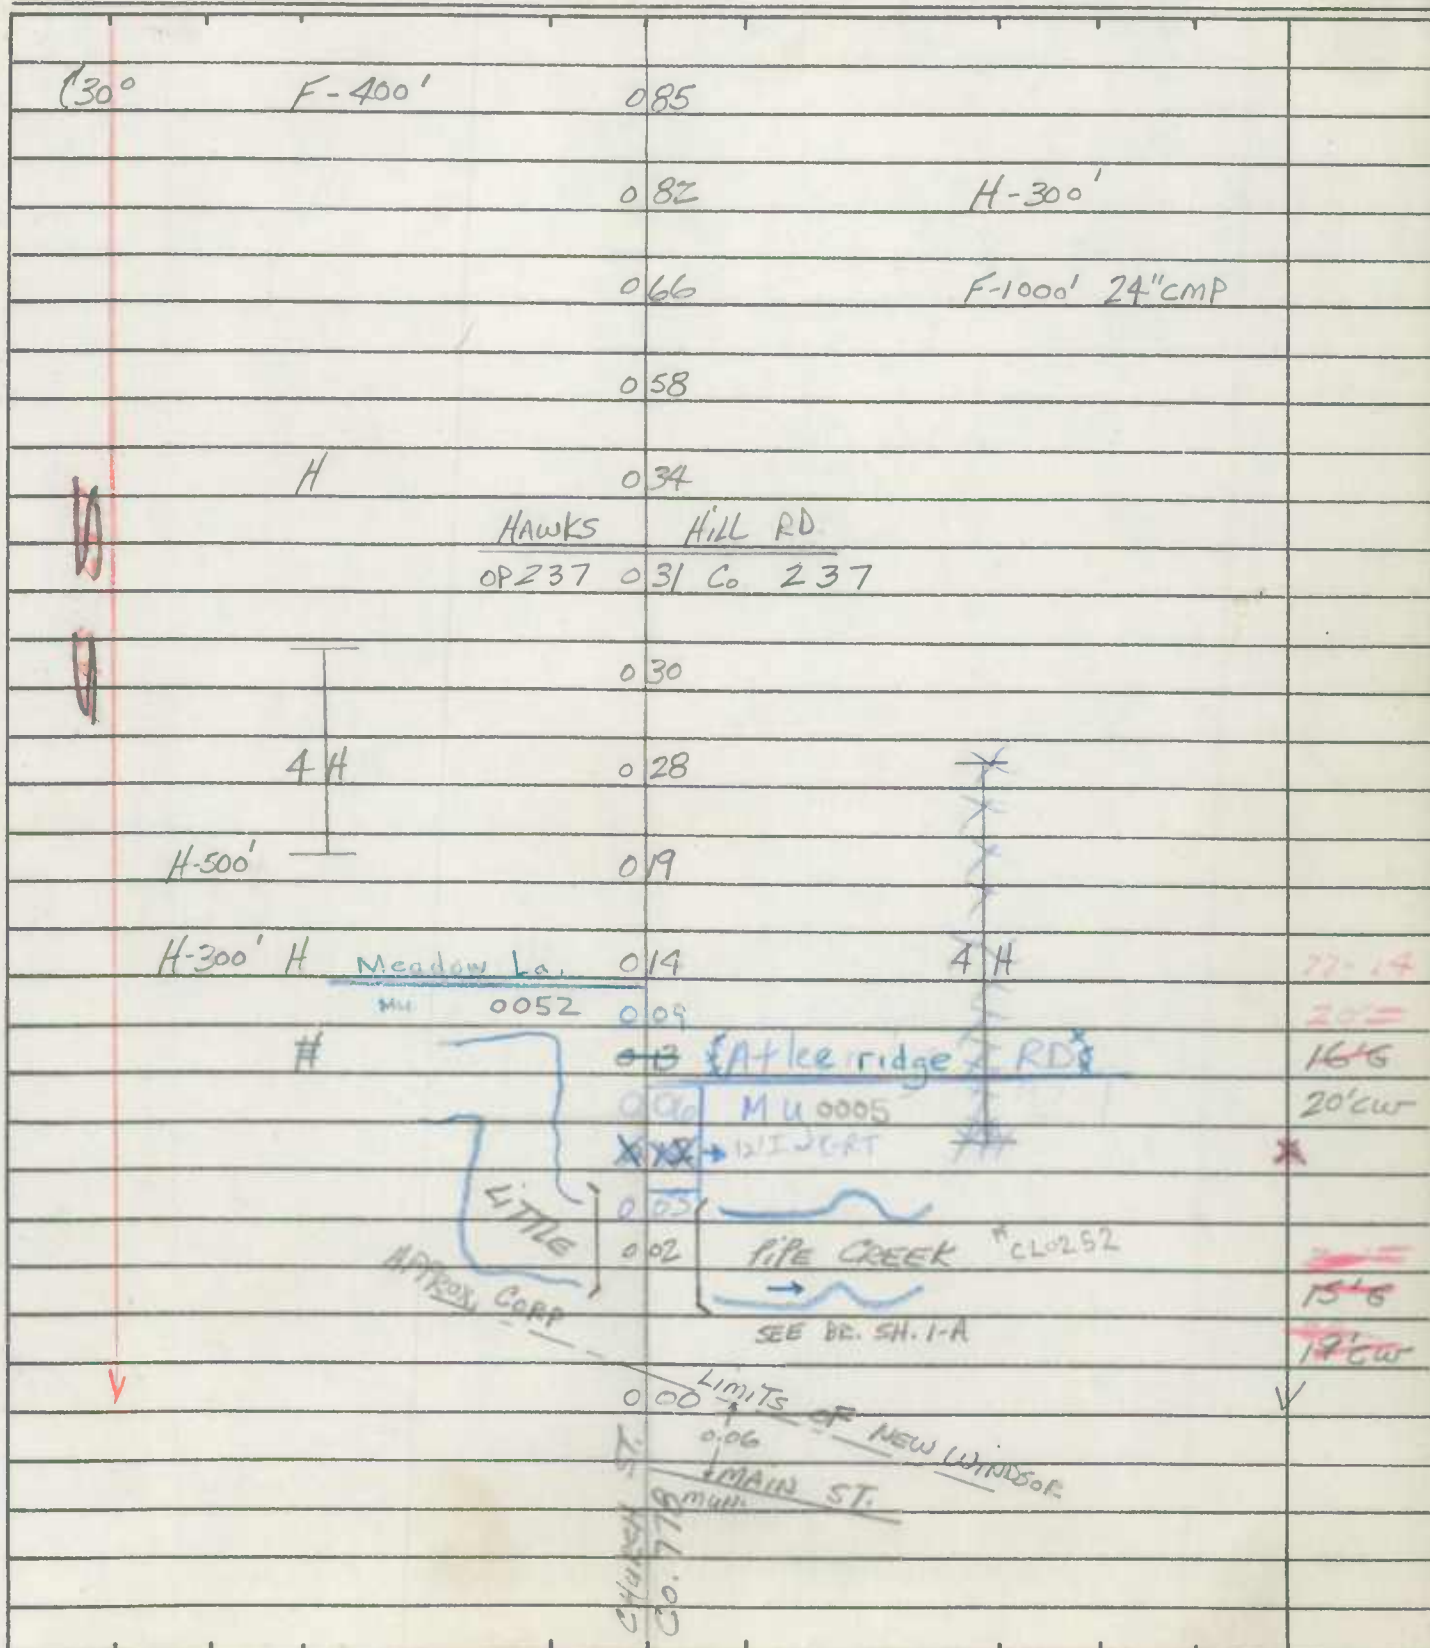 30° F-400' 0 85
0 82 H-300'
0 66 F-1000' 24"CMP
0 58
H 0 34
HAWKS HILL RD
OP237 0 31 Co 237
0 30
4 H 0 28
H-500' 0 19
H-300' H Meadow La. 0 14 4 H
MU 0052 0 09 20'
H 0 13 Atlee ridge RD 16'G
0 06 MU 0005 20'CW
0 05
LITTLE 0 02 PIPE CREEK CL0252
15'G
SEE BR. SH. 1-A
19'CW
APPROX. CORP
LIMITS OF NEW WINDSOR
0 00
0.06
MAIN ST.
MUN.
CHURCH ST.
CO. 778